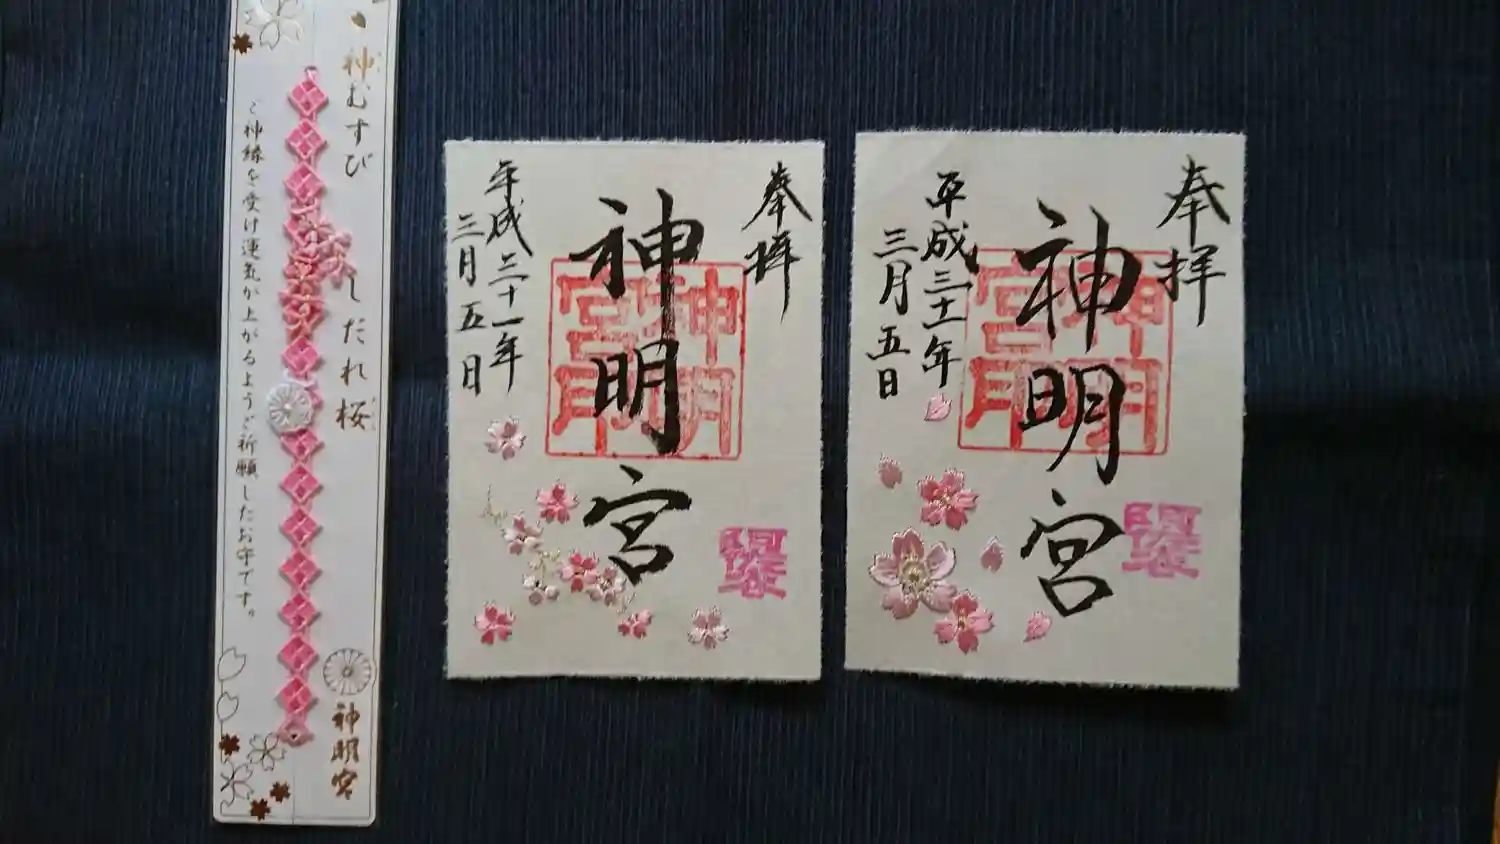 神むすび
しだれ桜
ご神縁を受け運気が上がるようご祈願したお守です。
神明宮
奉拝
神明宮
神明宮
平成三十一年
三月五日
奉拝
神明宮
神明宮
平成三十一年
三月五日